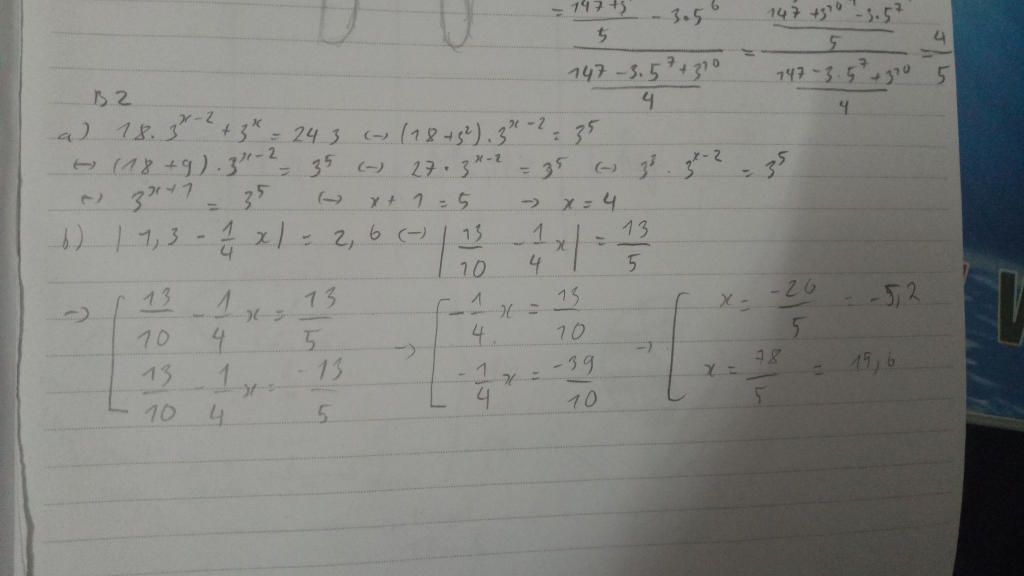 = (147 + 3)/5 - 3.5^6 / (147 - 3.5^7 + 3^10)/4 = (147 + 3^10 - 3.5^7)/5 / (147 - 3.5^7 + 3^10)/4 = 4/5
B2
a) 18. 3^(x-2) + 3^x = 243 ↔ (18 + 3^2) . 3^(x-2) = 3^5
↔ (18 + 9) . 3^(x-2) = 3^5 ↔ 27 . 3^(x-2) = 3^5 ↔ 3^3 . 3^(x-2) = 3^5
↔ 3^(x+1) = 3^5 ↔ x + 1 = 5 → x = 4
b) |1,3 - 1/4 x| = 2,6 ↔ |13/10 - 1/4 x| = 13/5
→ [ 13/10 - 1/4 x = 13/5 → [ -1/4 x = 13/10 → [ x = -26/5 = -5,2
13/10 - 1/4 x = -13/5 -1/4 x = -39/10 x = 78/5 = 15,6